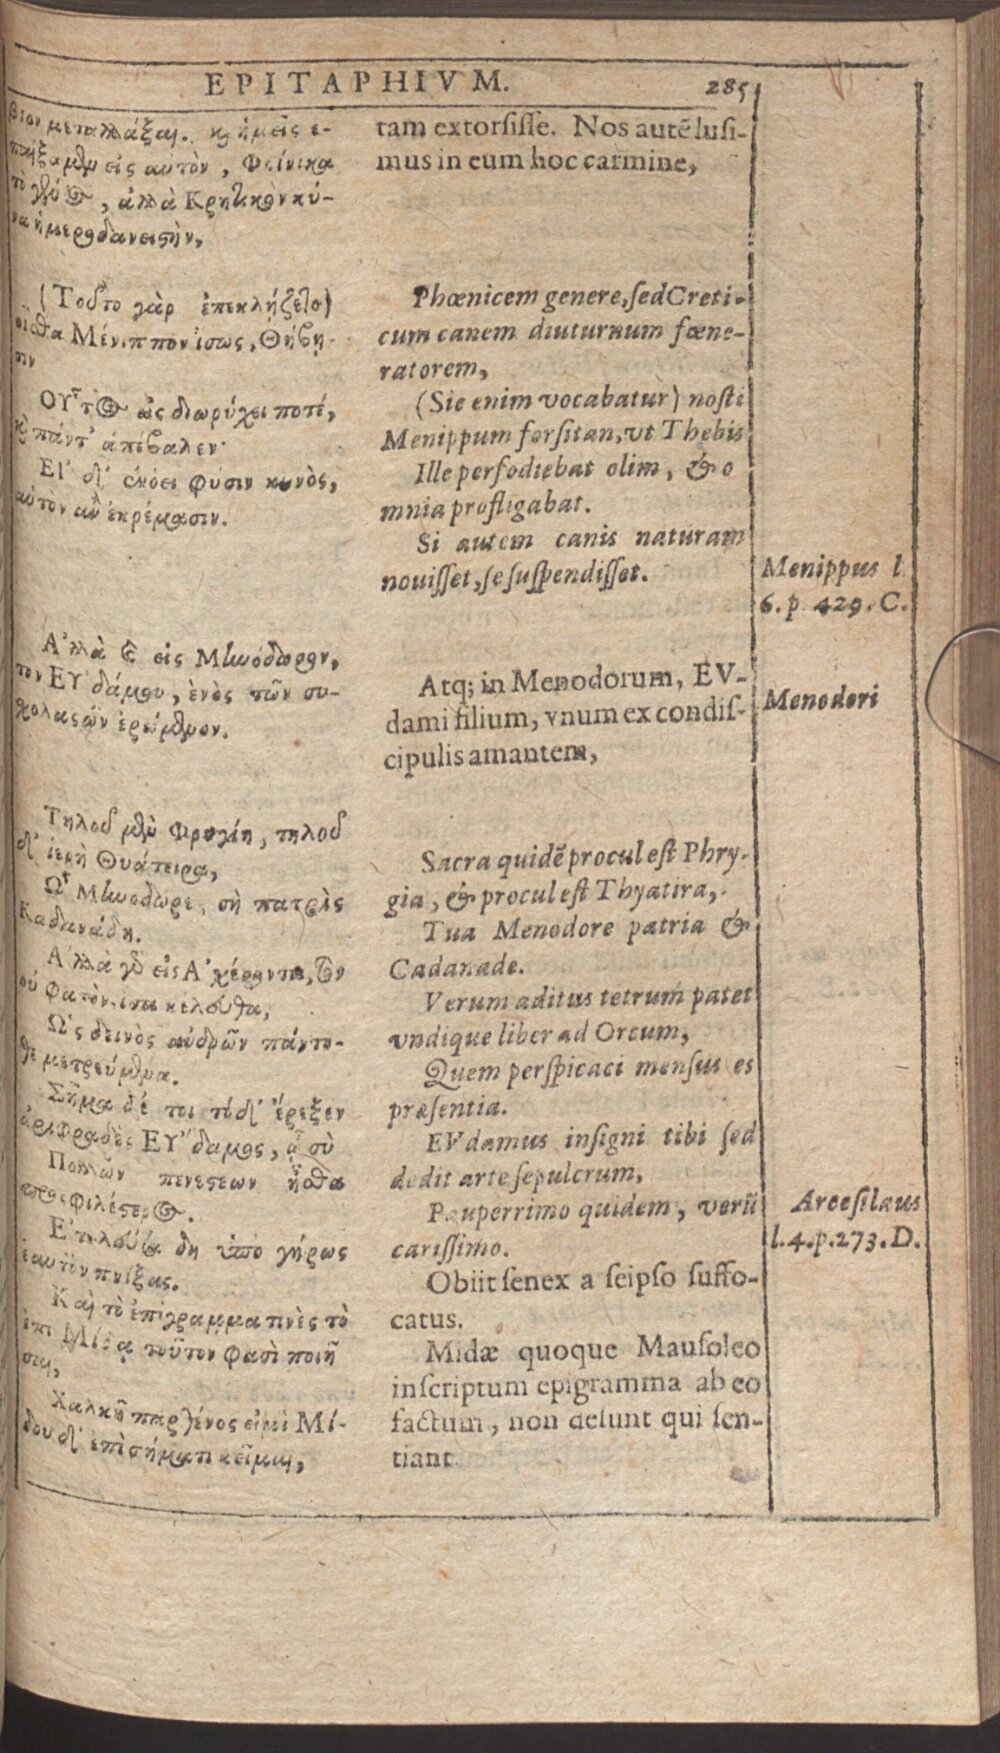 EPITAPHIVM. 285
βιον μεταλλάξαι. κỳ ἡμεῖς ἐ-
παίξαμλυ εἰς αὐτὸν, Φοίνικα
τὸ γλύος, ἀλλὰ Κρητικὸν κύ-
να ἡμεροδανειστὴν,
(Τοῦτο γὰρ ἐπεκλήζετο)
οἶσθα Μένιππον ἴσως, Θήβῃ-
σιν
Οὗτος ὡς διωρύχει ποτέ,
κỳ πάντ' ἀπέβαλεν·
Εἰ δ' ἐνόει φύσιν κυνὸς,
αὐτὸν ἂν ἐκρέμασιν.
Ἀλλὰ ϗ εἰς Μηνόδωρον,
τὸν Εὐδάμου, ἑνὸς τῶν συ-
χολαστῶν ἐρώμενον.
Τηλοῦ μὲν Φρυγίη, τηλοῦ
δ' ἱερὴ Θυάτειρα,
Ὦ Μηνόδωρε, σὴ πατρὶς
Καδανάδη.
Ἀλλὰ γὰρ εἰς Ἀχέροντα, τὸν
οὐ φατὸν, ἶσα κέλευθα,
Ὡς δεινὸς ἀνδρῶν πάντο-
θε μετρεύμενα.
Σῆμα δέ τοι τόδ' ἔρεξεν
ἀριφραδὲς Εὔδαμος, ᾧ σὺ
Πολλῶν πενεστέων ἦσθα
προσφιλέστερος.
Ἐτελεύτα δὴ ὑπὸ γήρως
ἑαυτὸν πνίξας.
Καὶ τὸ ἐπίγραμμα τινὲς τὸ
ἐπὶ Μίδᾳ τοῦτον φασὶ ποιῆ
σαι,
Χαλκῆ παρθένος εἰμὶ Μί-
δου δ' ἐπὶ σήματι κεῖμαι,
tam extorsisse. Nos autē lusi-
mus in eum hoc carmine,
Phœnicem genere, sed Creti-
cum canem diuturnum fœne-
ratorem,
(Sie enim vocabatur) nosti
Menippum forsitan, vt Thebis
Ille perfodiebat olim, & o
mnia profligabat.
Si autem canis naturam
nouisset, se suspendisset.
Atq; in Menodorum, EV-
dami filium, vnum ex condis-
cipulis amantem,
Sacra quidē procul est Phry-
gia, & procul est Thyatira,
Tua Menodore patria &
Cadanade.
Verum aditus tetrum patet
vndique liber ad Orcum,
Quem perspicaci mensus es
præsentia.
EVdamus insigni tibi sed
dedit arte sepulcrum,
Pauperrimo quidem, verū
carissimo.
Obiit senex a seipso suffo-
catus.
Midæ quoque Mausoleo
inscriptum epigramma ab eo
factum, non desunt qui sen-
tiant
Menippus l
6. p. 429. C.
Menodori
Arcesilaus
l. 4. p. 273. D.